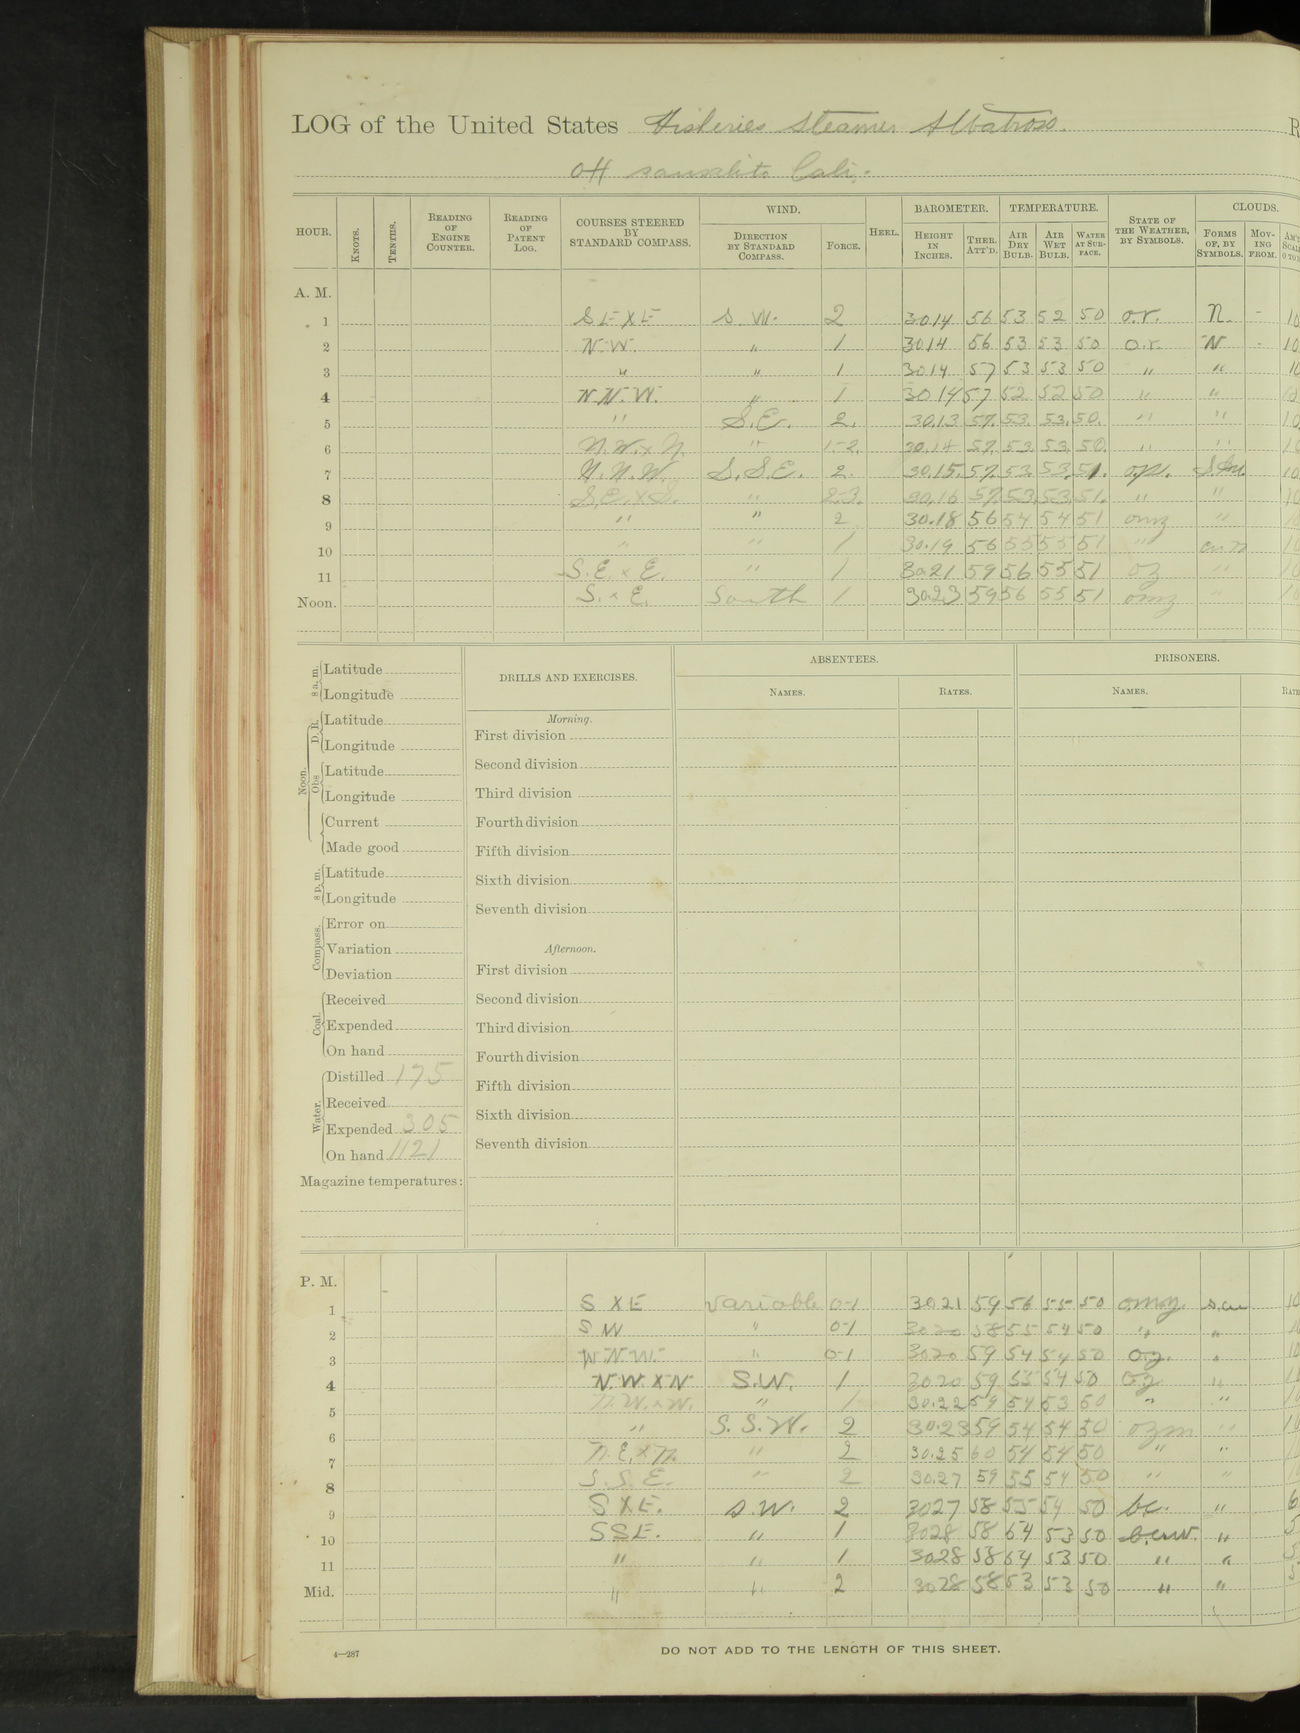 LOG of the United States Fisheries Steamer Albatross. R
off Sausalito Cali.
HOUR. KNOTS. TENTHS. READING OF ENGINE COUNTER. READING OF PATENT LOG. COURSES STEERED BY STANDARD COMPASS. WIND. DIRECTION BY STANDARD COMPASS. FORCE. HEEL. BAROMETER. HEIGHT IN INCHES. THER. ATT'D. TEMPERATURE. AIR DRY BULB. AIR WET BULB. WATER AT SURFACE. STATE OF THE WEATHER, BY SYMBOLS. CLOUDS. FORMS OF, BY SYMBOLS. MOVING FROM.
A. M.
1 S E X E S. W. 2 30.14 56 53 52 50 o.r. N. - 10
2 N. W. " 1 30.14 56 53 53 50 o.r. N - 10
3 " " 1 30.14 57 53 53 50 " " 10
4 N. N. W. " 1 30.14 57 52 52 50 " "
5 " S. E. 2. 30.13 57. 53. 53. 50. " " 10
6 N. W. x N. " 1-2. 30.14 57. 53. 53. 50. " " 10
7 N. N. W. S. S. E. 2. 30.15. 57. 53. 53. 51. 10
8 S. E. x S. " 2-3. 30.16 57. 53. 53. 51. " " 10
9 " " 2 30.18 56 54 54 51 omz " 10
10 " " 1 30.19 56 55 55 51 " 10
11 S. E. x E. " 1 30.21 59 56 55 51 oz " 10
Noon. S. x E. South 1 30.23 59 56 55 51 omz " 10
8 a. m. Latitude
Longitude
Noon. D. R. Latitude
Longitude
Obs Latitude
Longitude
Current
Made good
8 p. m. Latitude
Longitude
Compass. Error on
Variation
Deviation
Coal. Received
Expended
On hand
Water. Distilled 175
Received
Expended 305
On hand 1121
Magazine temperatures:
DRILLS AND EXERCISES.
Morning.
First division
Second division
Third division
Fourth division
Fifth division
Sixth division
Seventh division
Afternoon.
First division
Second division
Third division
Fourth division
Fifth division
Sixth division
Seventh division
ABSENTEES.
NAMES. RATES.
PRISONERS.
NAMES.
P. M.
1 S X E Variable 0-1 30 21 59 56 55 50 s.cu 10
2 S W " 0-1 30 20 58 55 54 50 " "
3 W. N. W. " 0-1 30 20 59 54 54 50 oz. " 10
4 N. W. X N S.W. 1 30 20 59 55 54 50 oz "
5 N. W. x W. " 1 30.22 59 54 53 50 " "
6 " S. S. W. 2 30.23 59 54 54 50 ozm " 10
7 N. E. x N. " 2 30.25 60 54 54 50 " "
8 S. S. E. " 2 30.27 59 55 54 50 " "
9 S X E. S. W. 2 30 27 58 55 54 50 bc. " 6
10 SSE. " 1 30 28 58 54 53 50 b.c.w. " 5
11 " " 1 30 28 58 54 53 50 " " 5
Mid. " " 2 30 28 58 53 53 50 " " 5
4—287
DO NOT ADD TO THE LENGTH OF THIS SHEET.